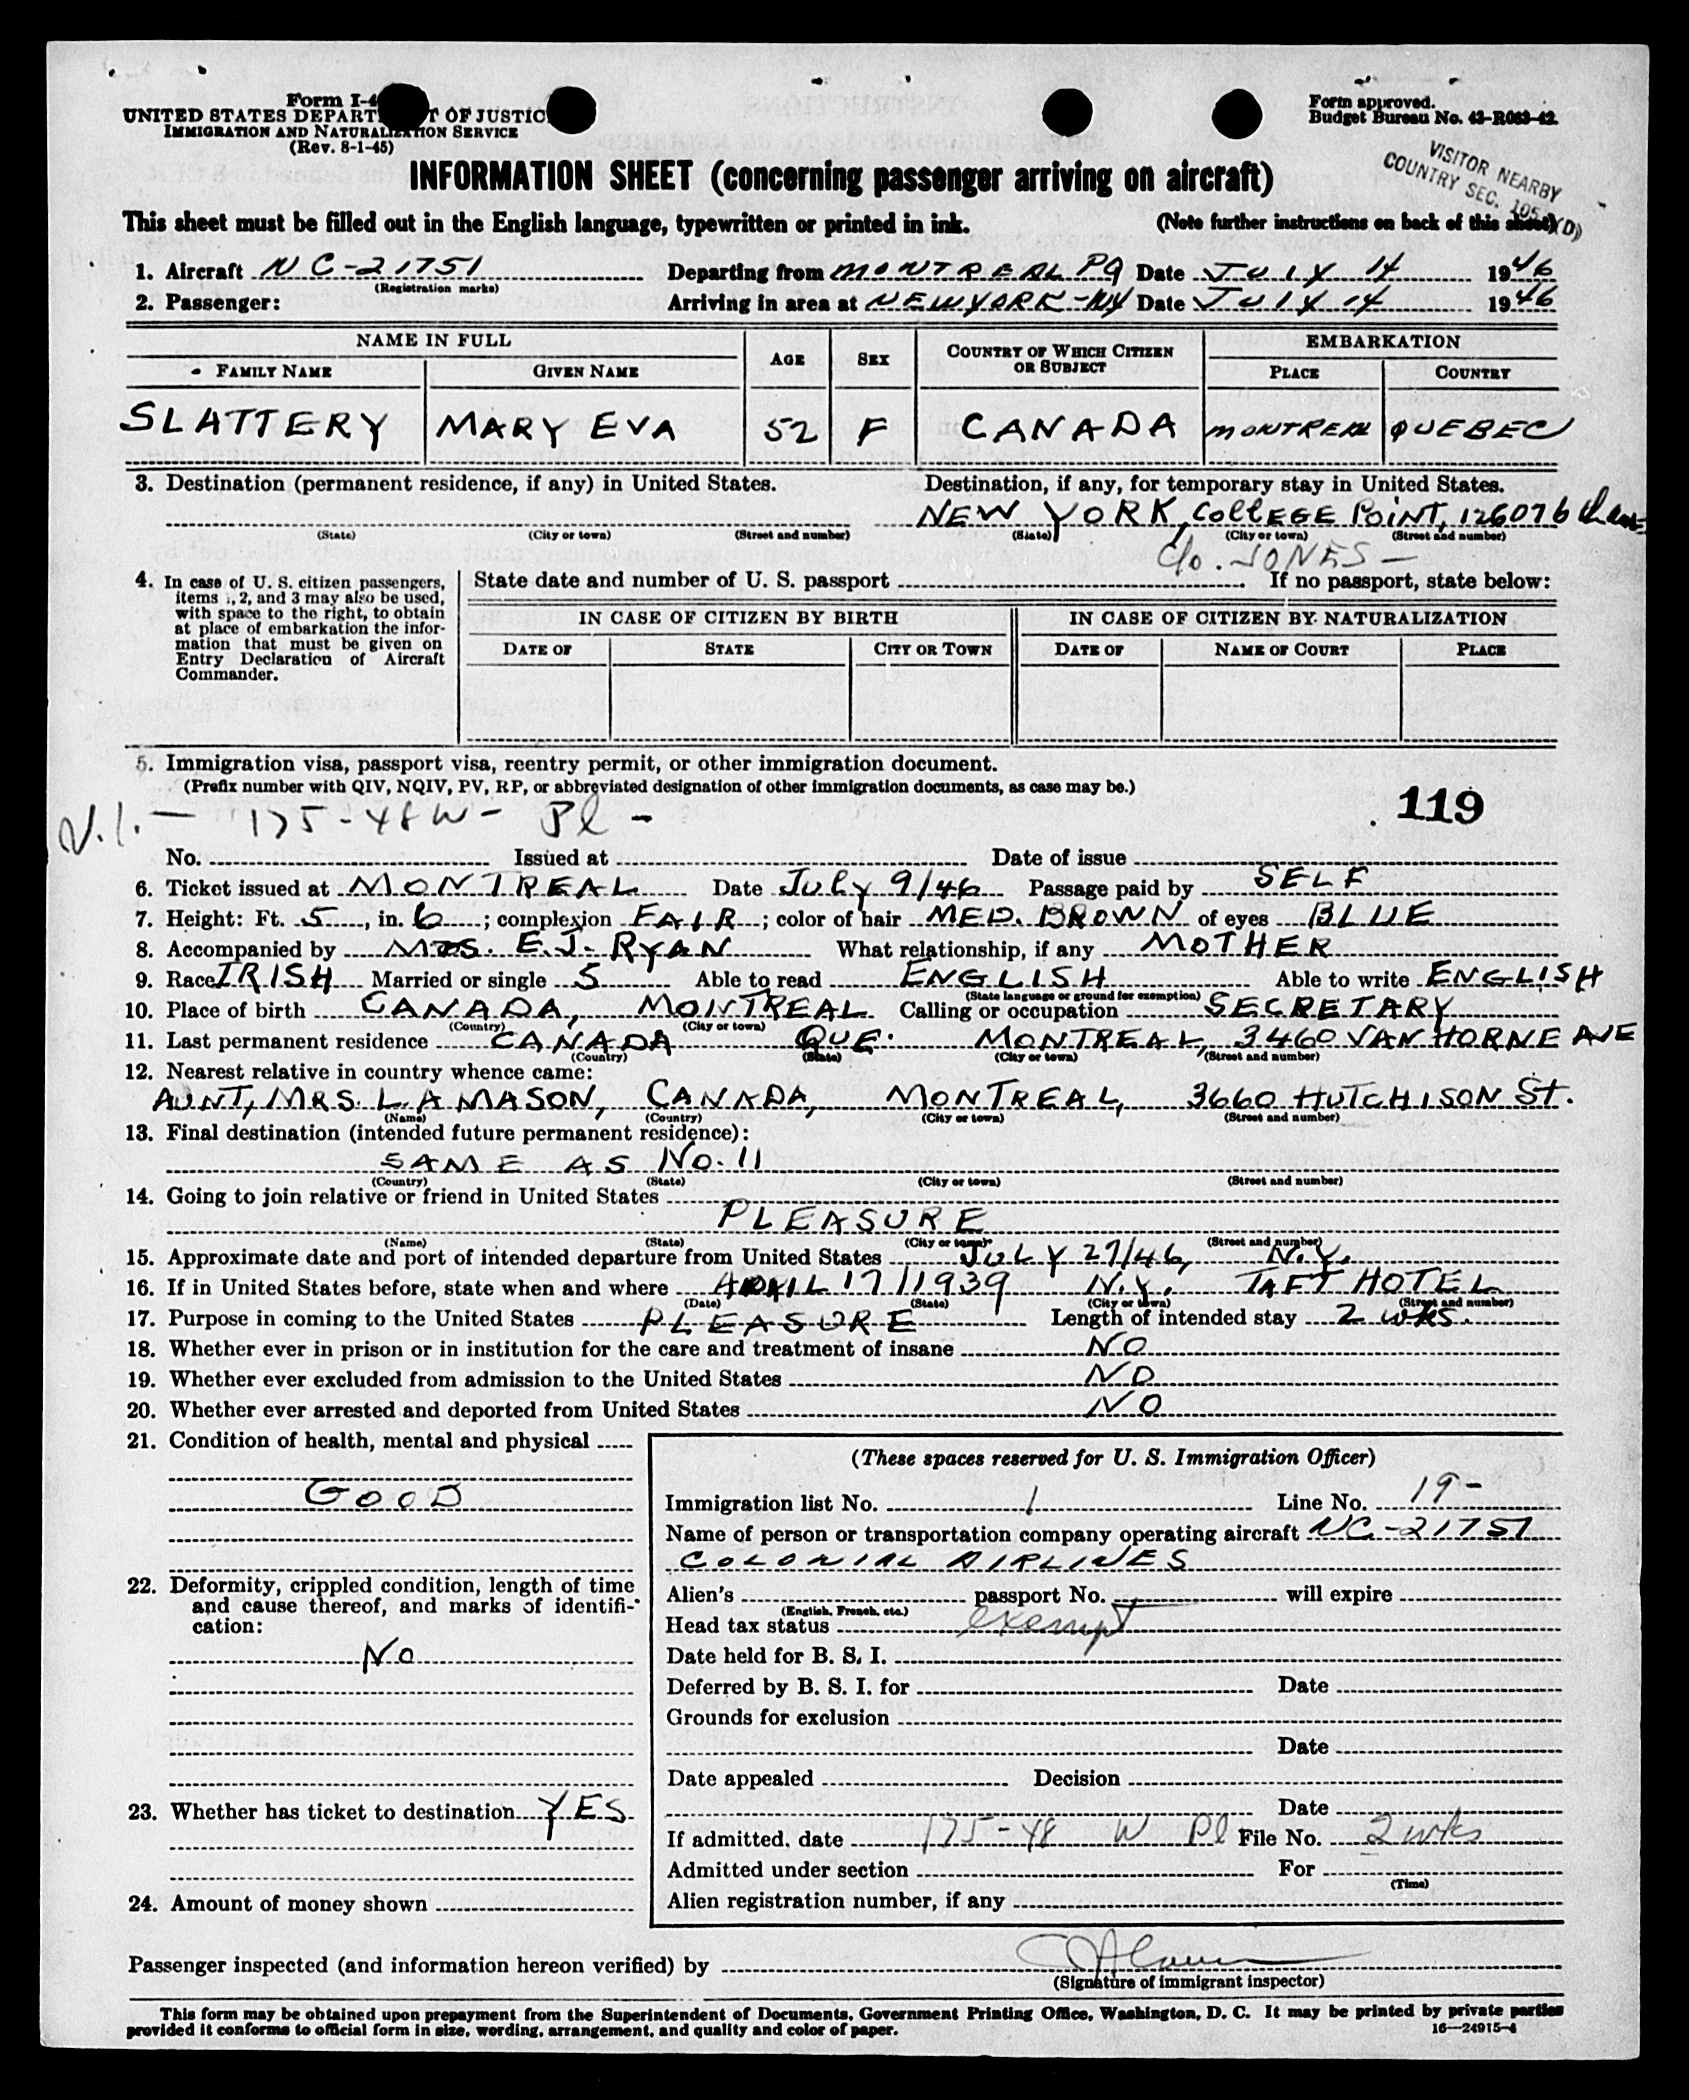 Form I-4
UNITED STATES DEPART T OF JUSTIC
IMMIGRATION AND NATURALIZATION SERVICE
(Rev. 8-1-45)
Form approved.
Budget Bureau No. 43-R063-42.
VISITOR NEARBY
COUNTRY SEC. (D)
INFORMATION SHEET (concerning passenger arriving on aircraft)
This sheet must be filled out in the English language, typewritten or printed in ink. (Note further instructions on back of this sheet)
1. Aircraft NC-21751 Departing from MONTREAL PQ Date JULY 14 1946
(Registration marks)
2. Passenger: Arriving in area at NEW YORK-NY Date JULY 14 1946
NAME IN FULL AGE SEX COUNTRY OF WHICH CITIZEN OR SUBJECT EMBARKATION
FAMILY NAME GIVEN NAME PLACE COUNTRY
SLATTERY MARY EVA 52 F CANADA MONTREAL QUEBEC
3. Destination (permanent residence, if any) in United States. Destination, if any, for temporary stay in United States.
NEW YORK, COLLEGE POINT, 12607 6
(State) (City or town) (Street and number) (State) (City or town) (Street and number)
c/o. JONES -
4. In case of U. S. citizen passengers, items 1, 2, and 3 may also be used, with space to the right, to obtain at place of embarkation the information that must be given on Entry Declaration of Aircraft Commander.
State date and number of U. S. passport If no passport, state below:
IN CASE OF CITIZEN BY BIRTH IN CASE OF CITIZEN BY NATURALIZATION
DATE OF STATE CITY OR TOWN DATE OF NAME OF COURT PLACE
5. Immigration visa, passport visa, reentry permit, or other immigration document.
(Prefix number with QIV, NQIV, PV, RP, or abbreviated designation of other immigration documents, as case may be.)
119
V.I. - 175-48W- Pl -
No. Issued at Date of issue
6. Ticket issued at MONTREAL Date July 9/46 Passage paid by SELF
7. Height: Ft. 5, in. 6; complexion FAIR; color of hair MED. BROWN of eyes BLUE
8. Accompanied by MRS. E.J. RYAN What relationship, if any MOTHER
9. Race IRISH Married or single S Able to read ENGLISH Able to write ENGLISH
(State language or ground for exemption)
10. Place of birth CANADA, MONTREAL Calling or occupation SECRETARY
(Country) (City or town)
11. Last permanent residence CANADA QUE. MONTREAL, 3460 VAN HORNE AVE
(Country) (State) (City or town) (Street and number)
12. Nearest relative in country whence came:
AUNT, MRS. L.A MASON, CANADA, MONTREAL, 3660 HUTCHISON St.
(Name) (Country) (City or town) (Street and number)
13. Final destination (intended future permanent residence):
SAME AS No. 11
(Country) (State) (City or town) (Street and number)
14. Going to join relative or friend in United States
PLEASURE
(Name) (State) (City or town) (Street and number)
15. Approximate date and port of intended departure from United States JULY 27/46, N.Y.
16. If in United States before, state when and where APRIL 17/1939 N.Y. TAFT HOTEL
(Date) (State) (City or town) (Street and number)
17. Purpose in coming to the United States PLEASURE Length of intended stay 2 wks.
18. Whether ever in prison or in institution for the care and treatment of insane NO
19. Whether ever excluded from admission to the United States NO
20. Whether ever arrested and deported from United States NO
21. Condition of health, mental and physical
GOOD
22. Deformity, crippled condition, length of time and cause thereof, and marks of identification:
No
23. Whether has ticket to destination YES
24. Amount of money shown
(These spaces reserved for U. S. Immigration Officer)
Immigration list No. 1 Line No. 19-
Name of person or transportation company operating aircraft NC-21751
COLONIAL AIRLINES
Alien's passport No. will expire
(English, French, etc.)
Head tax status exempt
Date held for B. S. I.
Deferred by B. S. I. for Date
Grounds for exclusion
Date
Date appealed Decision
Date
If admitted, date 175-48 W Pl File No. 2 wks
Admitted under section For
(Time)
Alien registration number, if any
Passenger inspected (and information hereon verified) by
(Signature of immigrant inspector)
This form may be obtained upon prepayment from the Superintendent of Documents, Government Printing Office, Washington, D. C. It may be printed by private parties
provided it conforms to official form in size, wording, arrangement, and quality and color of paper. 16—24915-4